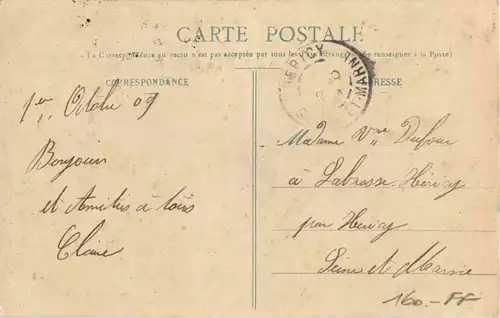 CARTE POSTALE
(La Correspondance au recto n'est pas acceptée par tous les Pays Étrangers. Se renseigner à la Poste)
CORRESPONDANCE
ADRESSE
1er Octobre 09
Bonjour
et Amitiés à tous
Claire
Madame Vve Dufour
à Labrosse-Héricy
par Héricy
Seine et Marne
160.-FF